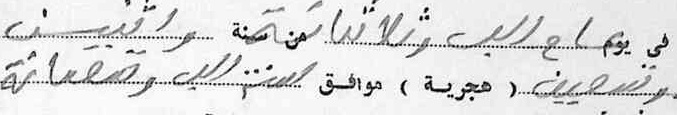 في يوم سابع الف وثلاثمائة من سنة واثنين
وتسعين ( هجرية ) موافق سنة الف وتسعمائة